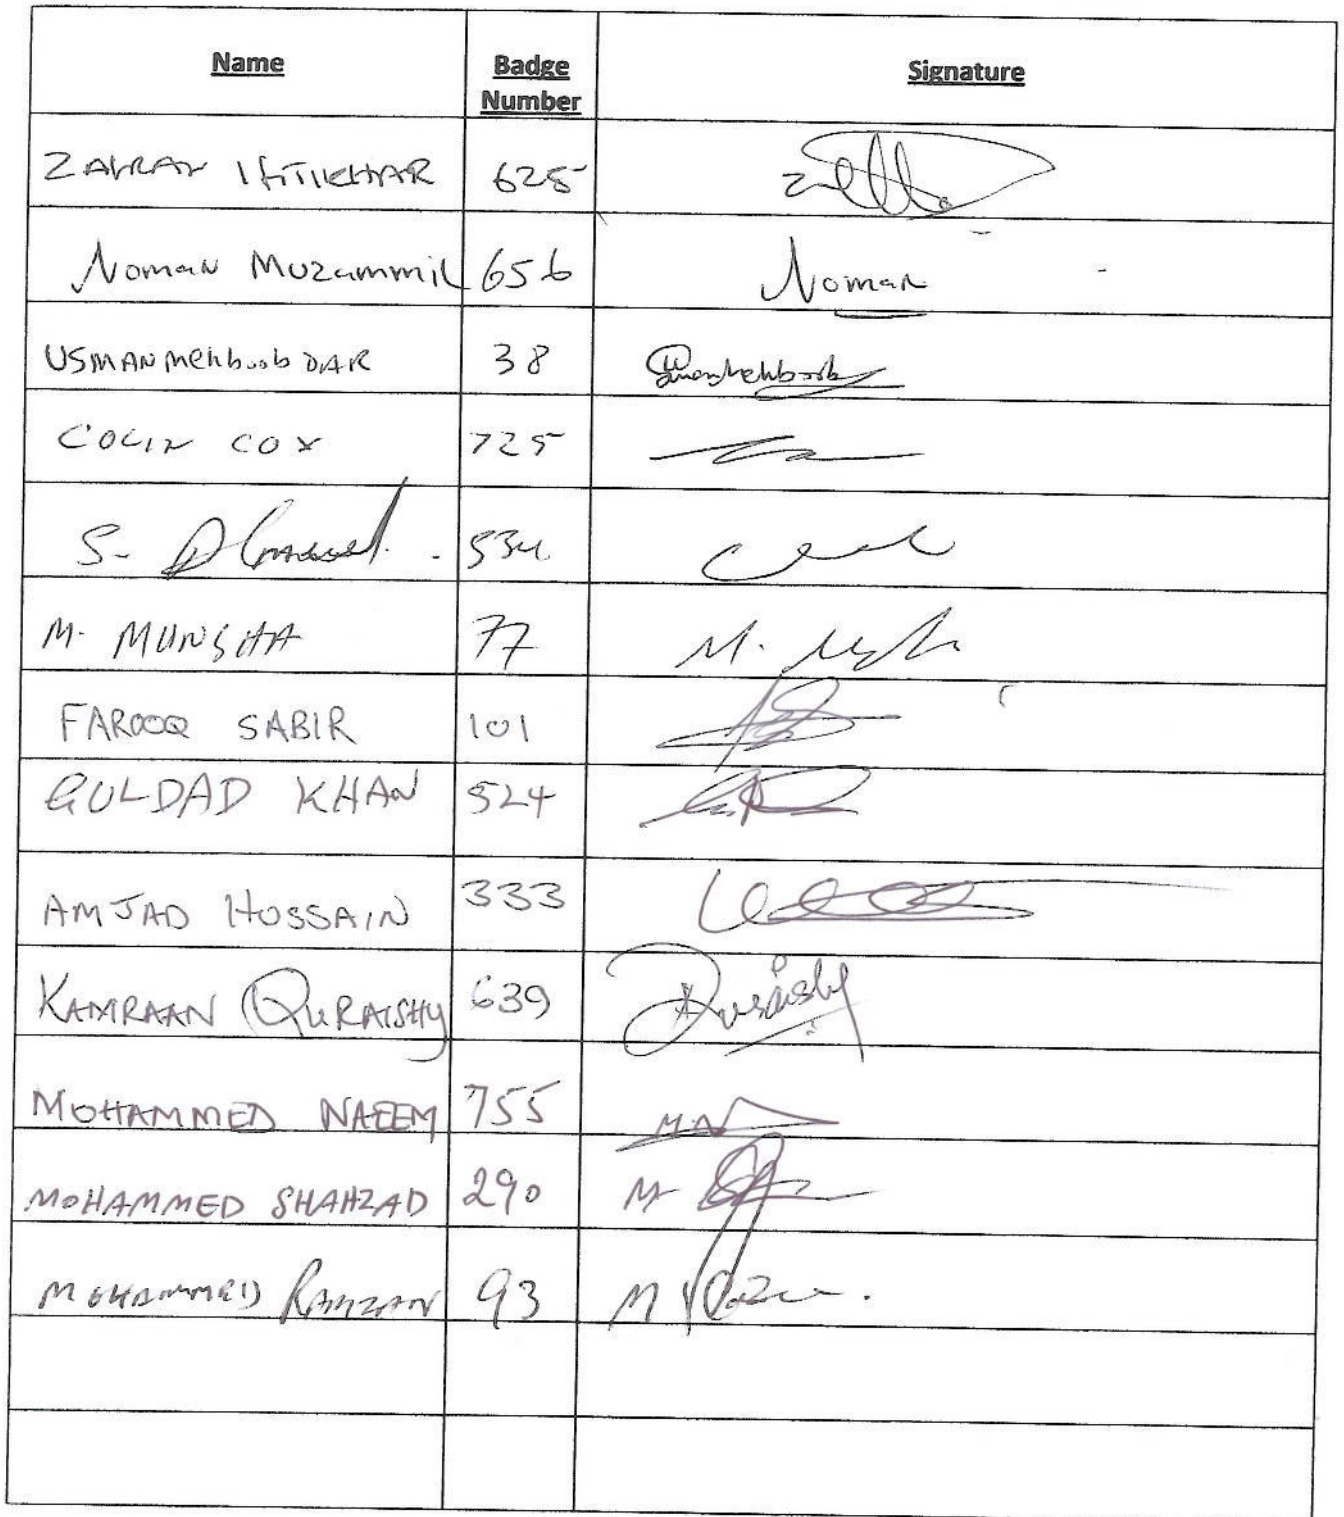 Name Badge Number Signature
IFTIKHAR 625
Noman Muzammil 656 Noman
USMAN Mehboob DAR 38
COLIN COX 725
S. 534
M. MUNSHA 77
FAROOQ SABIR 101
GULDAD KHAN 524
AMJAD HUSSAIN 333
KAMRAAN QURAISHY 639 Quraishy
MOHAMMED NAEEM 755 M.N
MOHAMMED SHAHZAD 290 M
MOHAMMED RAMZAN 93 M